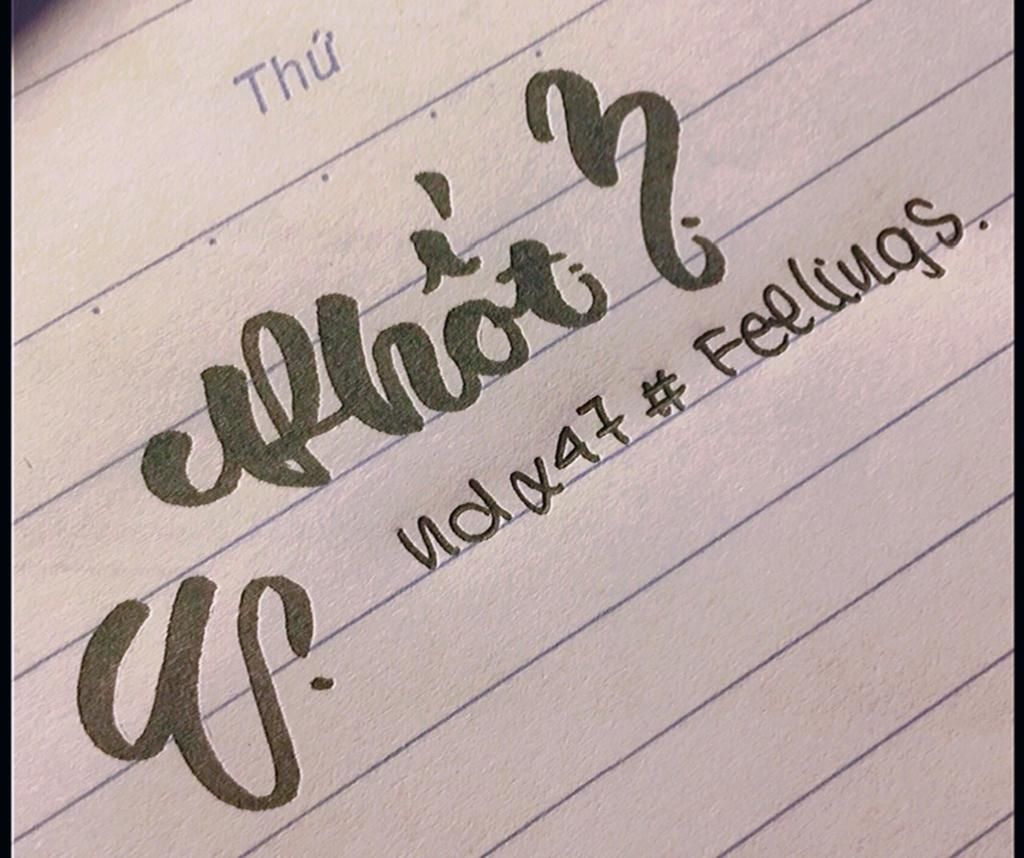 Thứ
Nhốt
ndx47 # Feelings.